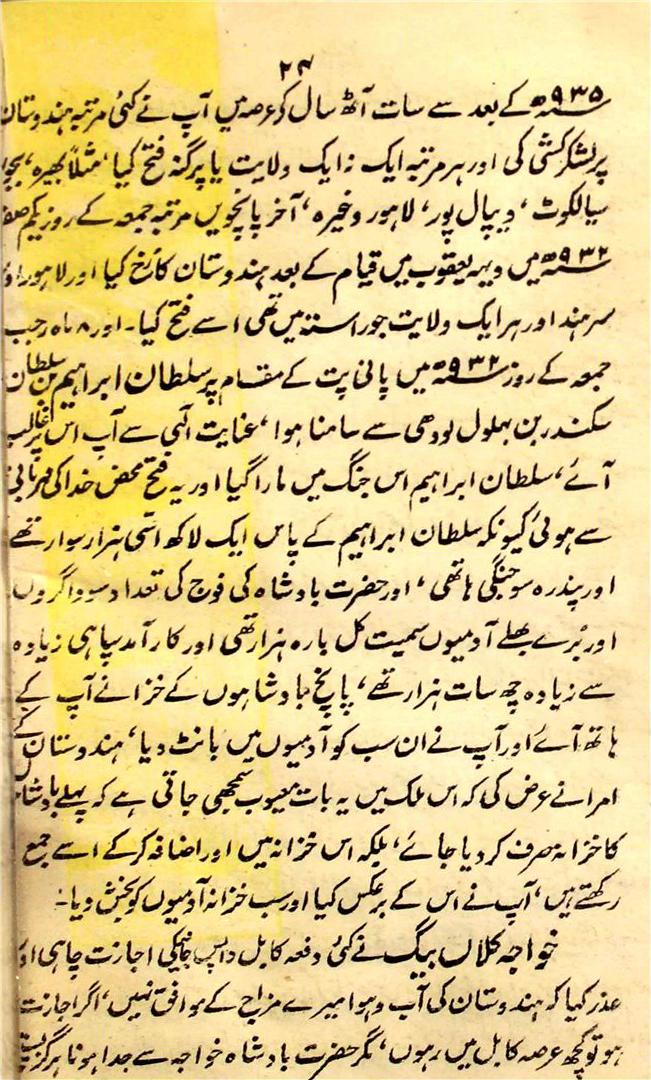 ۲۴
۹۳۵ھ کے بعد سے سات آٹھ سال کے عرصہ میں آپ نے کئی مرتبہ ہندوستان
پر لشکر کشی کی اور ہر مرتبہ ایک نہ ایک ولایت یا پرگنہ فتح کیا، مثلاً بھیرہ،
سیالکوٹ، دیپال پور، لاہور وغیرہ، آخر پانچویں مرتبہ جمعہ کے روز یکم صفر
۹۳۲ھ میں دیہہ یعقوب میں قیام کے بعد ہندوستان کا رخ کیا اور لاہور اور
سرہند اور ہر ایک ولایت جو راستہ میں تھی اسے فتح کیا۔ اور ۸ ماہ رجب
جمعہ کے روز ۹۳۲ھ میں پانی پت کے مقام پر سلطان ابراہیم بن سلطان
سکندر بن بہلول لودھی سے سامنا ہوا، عنایت الٰہی سے آپ اس پر غالب
آئے، سلطان ابراہیم اس جنگ میں مارا گیا اور یہ فتح محض خدا کی مہربانی
سے ہوئی کیونکہ سلطان ابراہیم کے پاس ایک لاکھ اسّی ہزار سوار تھے
اور پندرہ سو جنگی ہاتھی، اور حضرت بادشاہ کی فوج کی تعداد سوداگروں
اور بُرے بھلے آدمیوں سمیت کل بارہ ہزار تھی اور کارآمد سپاہی زیادہ
سے زیادہ چھ سات ہزار تھے، پانچ بادشاہوں کے خزانے آپ کے
ہاتھ آئے اور آپ نے ان سب کو آدمیوں میں بانٹ دیا، ہندوستان کے
امرا نے عرض کی کہ اس ملک میں یہ بات معیوب سمجھی جاتی ہے کہ پہلے بادشاہوں
کا خزانہ صرف کر دیا جائے، بلکہ اس خزانہ میں اور اضافہ کرکے اسے جمع
رکھتے ہیں، آپ نے اس کے برعکس کیا اور سب خزانہ آدمیوں کو بخش دیا۔
خواجہ کلاں بیگ نے کئی دفعہ کابل واپس جانیکی اجازت چاہی اور
عذر کیا کہ ہندوستان کی آب و ہوا میرے مزاج کے موافق نہیں، اگر اجازت
ہو تو کچھ عرصہ کابل میں رہوں، مگر حضرت بادشاہ خواجہ سے جدا ہونا ہرگز